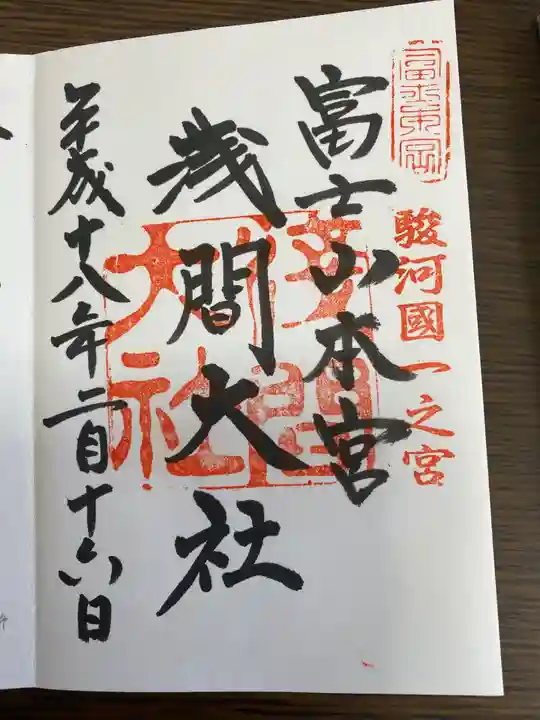 駿河國一之宮
富士山本宮
浅間大社
平成十八年二月十六日